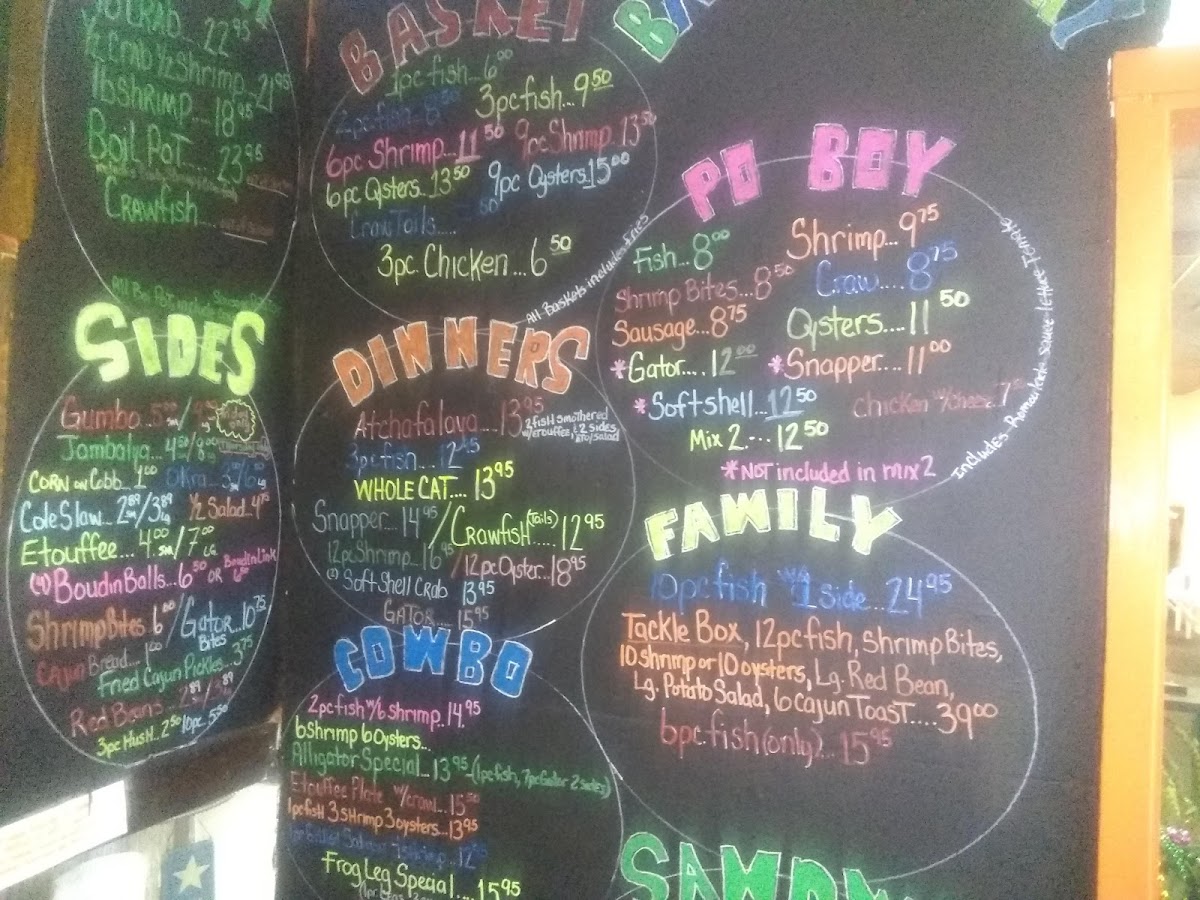 22 95
½ CRAB ½ Shrimp 21 95
1lb Shrimp... 18 95
Boil Pot... 23 95
Crawfish
SIDES
Gumbo 5 / 9
Friday only
Jambalya...4 50/8 00
Corn on Cobb 1 00 Okra
Cole Slaw...2 89 sm/3 89 LG ½ Salad...4 75
Etouffee...4 00 sm/7 00 LG
(4) Boudin Balls...6 50 OR Boudin Link 6 50
Shrimp Bites 6 00/Gator Bites...10 75
Cajun Bread...1 00
Fried Cajun Pickles...3 75
Red Beans...2 89/3 89
3pc Hush...2 50 10pc. 5 50
BASKET
1pc fish...6 00
2pc fish 3pc fish...9 50
6pc Shrimp...11 50 9pc Shrimp.13 50
6pc Oysters..13 50 9pc Oysters.15 00
Craw Tails..... 50
3pc. Chicken...6 50
All Baskets includes fries
DINNERS
Atchafalaya.....13 95 2 fish smothered w/etouffee, & 2 sides
3pc fish....12 45
WHOLE CAT....13 95
Snapper...14 95/Crawfish (Tails).....12 95
12pc Shrimp...16 95/12pc Oyster...18 95
Soft Shell Crab 13 95
GATOR.....15 95
COMBO
2pc fish w/6 shrimp.14.95
6 shrimp 6 oysters...
Alligator Special...13 95 (1pc fish, 7pc Gator 2 sides)
Etouffee Plate w/craw...15 50
1pc fish 3 shrimp 3 oysters...13 95
Frog Leg Special....15 95
PO BOY
Fish...8 00 Shrimp...9 75
Shrimp Bites...8 50 Craw....8 75
Sausage...8 75 Oysters....11 50
*Gator....12 00 *Snapper...11 00
*Softshell...12 50 Chicken w/cheese.7
Mix 2....12 50
*NOT included in mix 2
Includes Homemade sauce lettuce Tomato
FAMILY
10pc fish w/ 1 side...24 95
Tackle Box, 12pc fish, shrimp Bites,
10 shrimp or 10 oysters, Lg. Red Bean,
Lg. Potato Salad, 6 Cajun Toast....39 00
6pc. fish (only)...15 95